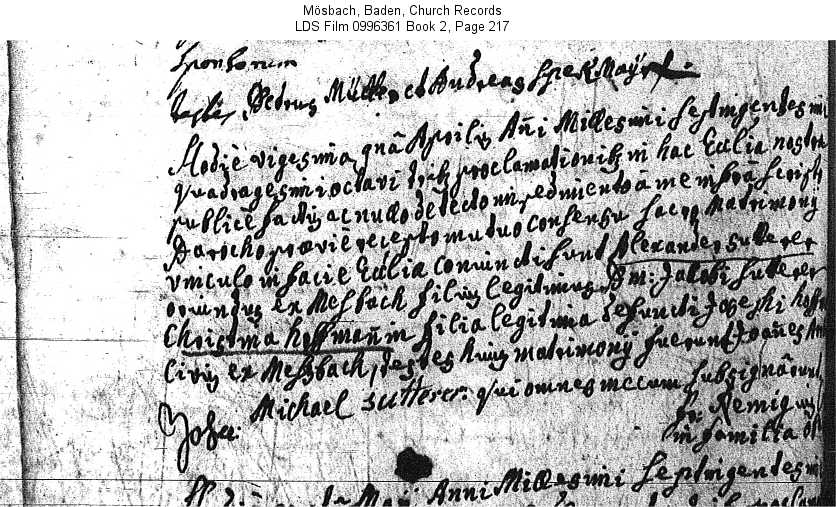 Mösbach, Baden, Church Records
LDS Film 0996361 Book 2, Page 217
sponsorum
testes Petrus Müller et Andreas speckMaÿr
Hodiè vigesima Aprilis Añi Millesimi septingentesimi
quadragesimi octavi proclamationib in hac Ecclia nostra
publicè factis ac nullo detecto impedimento à me infrà scripto
Parocho præviè recepto mutuo consensu sacro Matrimonÿ
vinculo in facie Ecclia coniuncti sunt Alexander sutterer
oriundus ex Messbach filius legitimus Jacobi sutterer
Christina hoffmañin filia legitima defuncti Josephi hoff
civis ex Messbach, testes huius matrimonÿ fuerunt Joañes
Michael sutterer. qui omnes mecum subsignârunt
Remigius
in familia
Maÿ Anni Millesimi septingentesimi